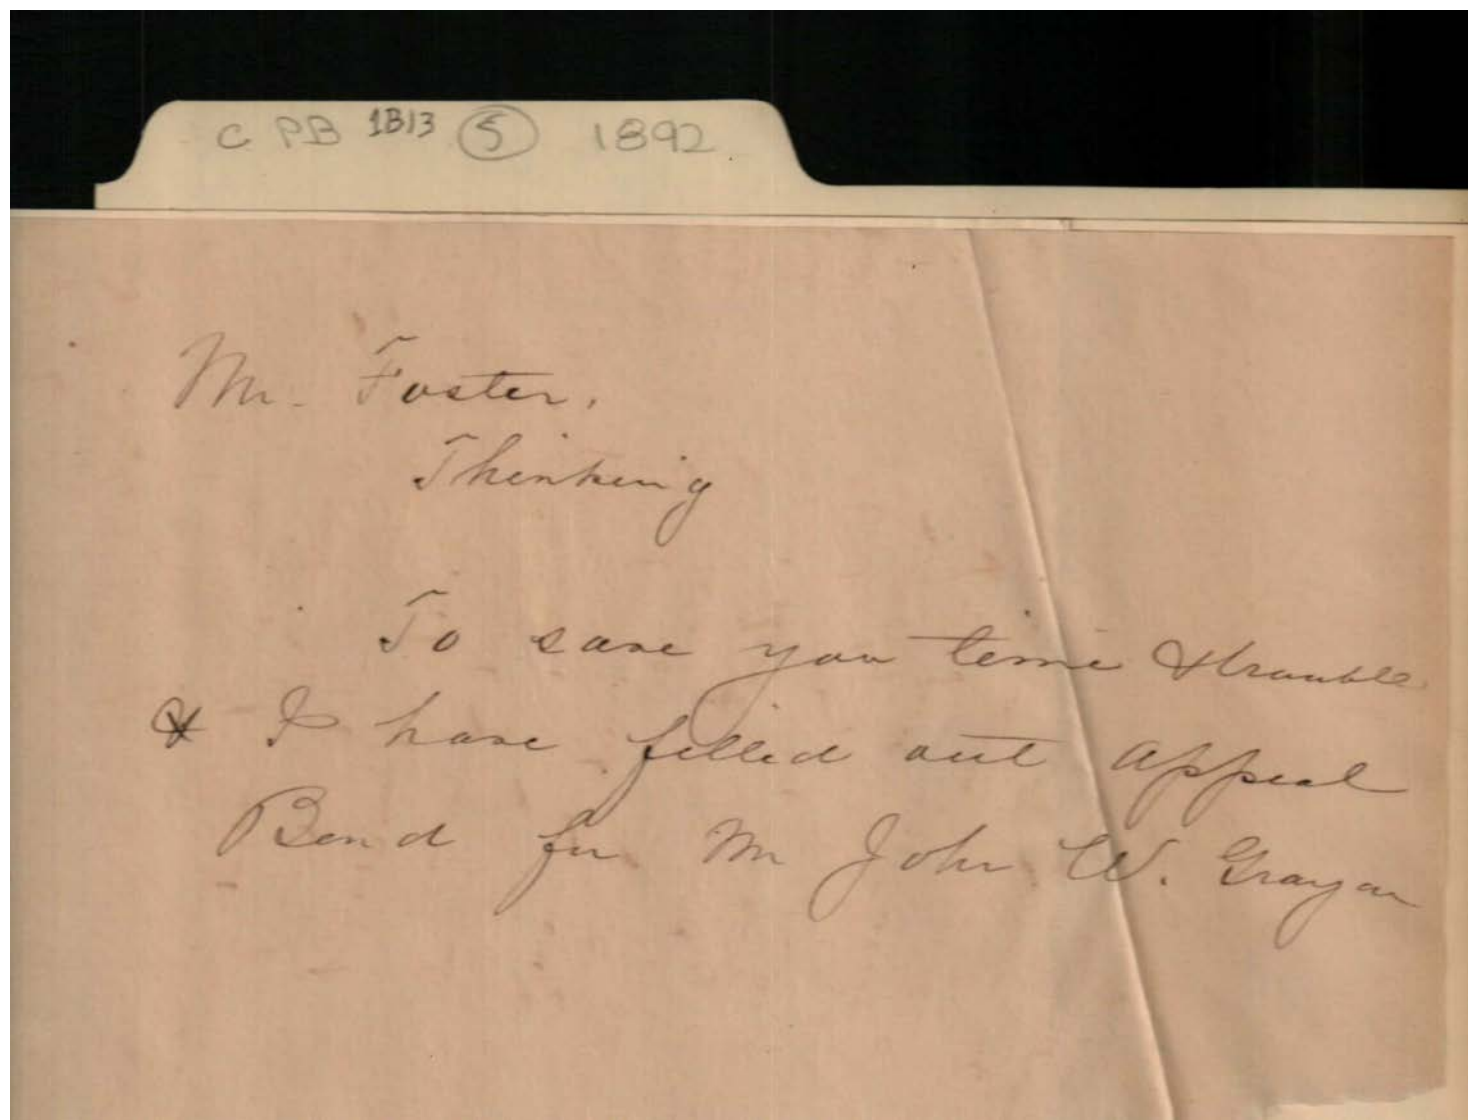 C PB 1B13 5 1892
Mr. Foster,
Thinking
To save you time & trouble
& I have filled out appeal
Bond for Mr John W. Grayson